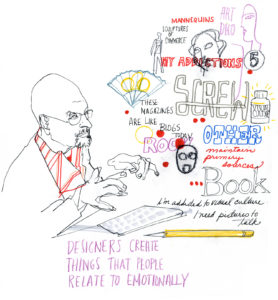 ART
MANNEQUINS
SCULPTURES
OF
COMMERCE
MY ADDICTIONS
5
SCREW
THESE
MAGAZINES
ARE LIKE BLOGS
TODAY
OTHER
maintain
primary
sources
...BOOK
I'm addicted to visual culture
I need pictures to
talk
DESIGNERS CREATE
THINGS THAT PEOPLE
RELATE TO EMOTIONALLY